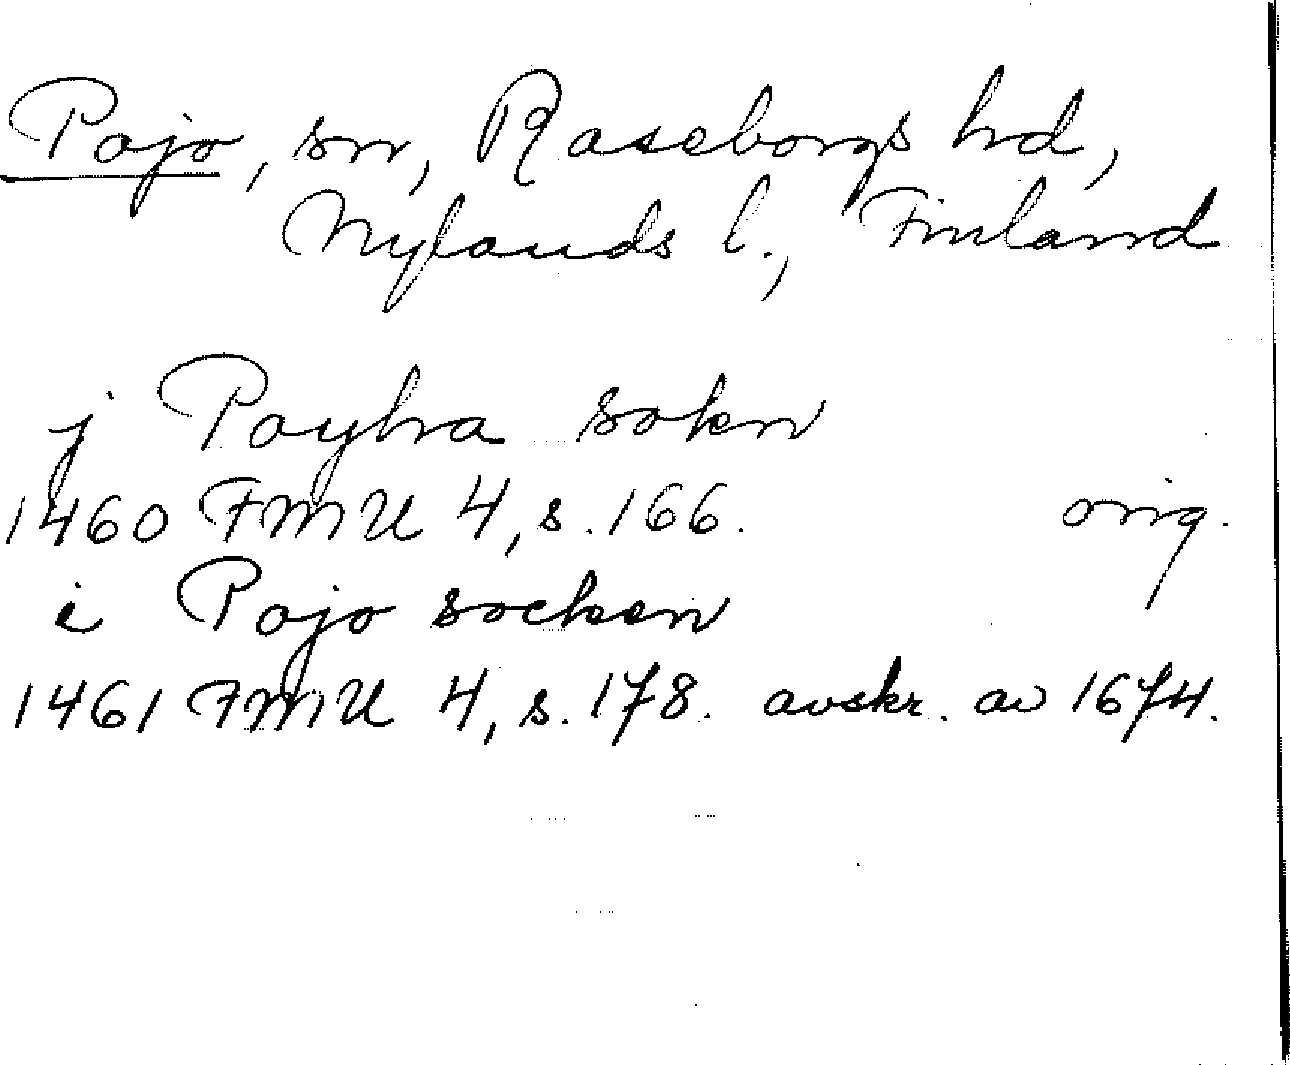 Pojo, sn, Raseborgs hd,
Nylands l., Finland
j Poyhia sokn
1460 FMU 4, s. 166. orig.
i Pojo socken
1461 FMU 4, s. 178. avskr. av 1674.